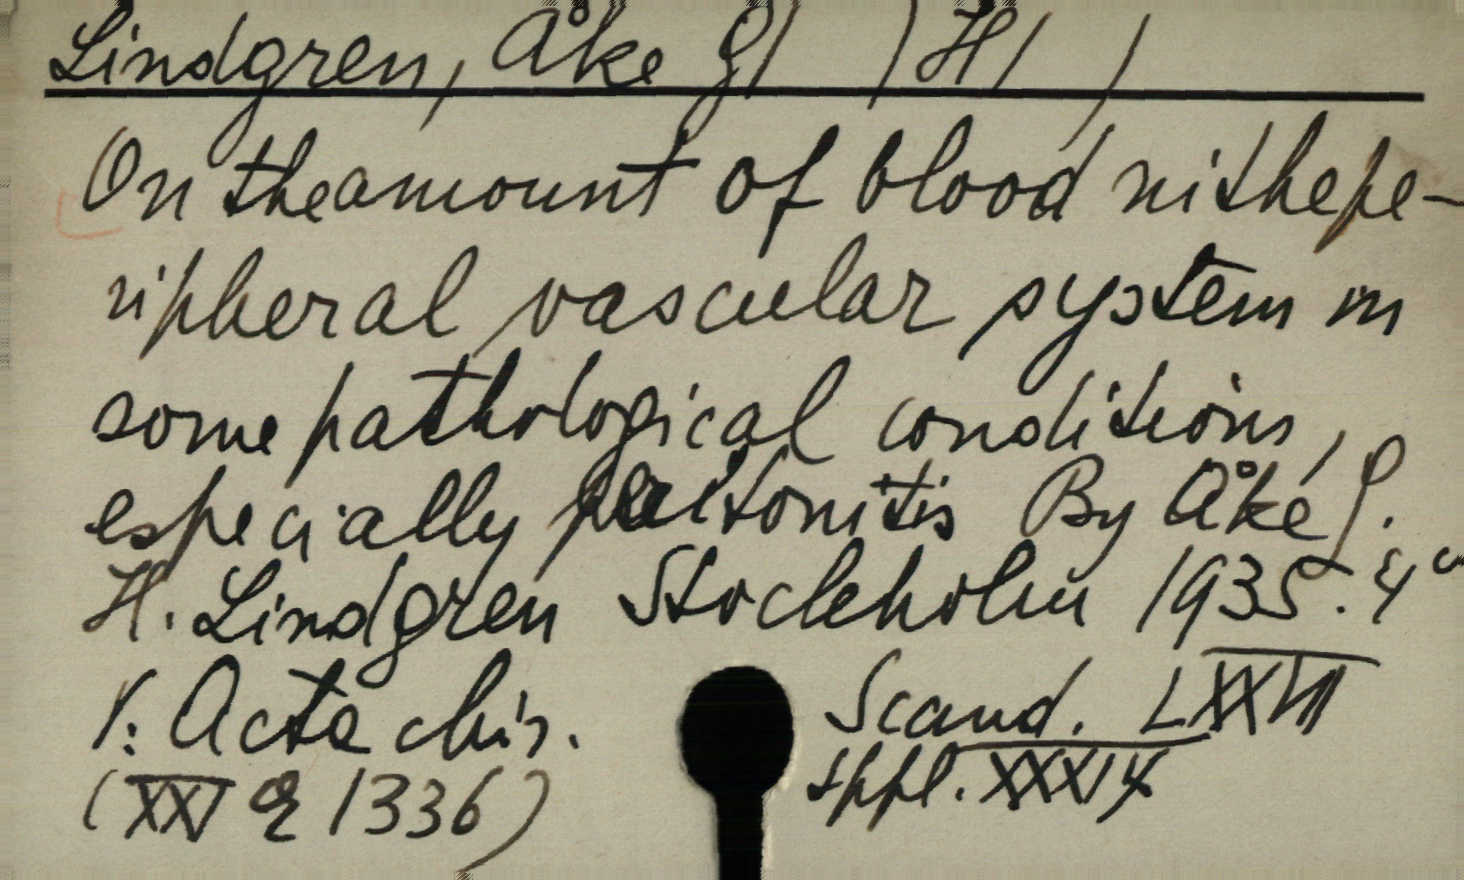 Lindgren, Åke G/ /H/ /
On the amount of blood in the pe-
ripheral vascular system in
some pathological conditions,
especially peritonitis By Åke G.
H. Lindgren Stockholm 1935. 4°
V: Acta chir. Scand. LXXVII
sppl. XXXIX
(XXV 1336)